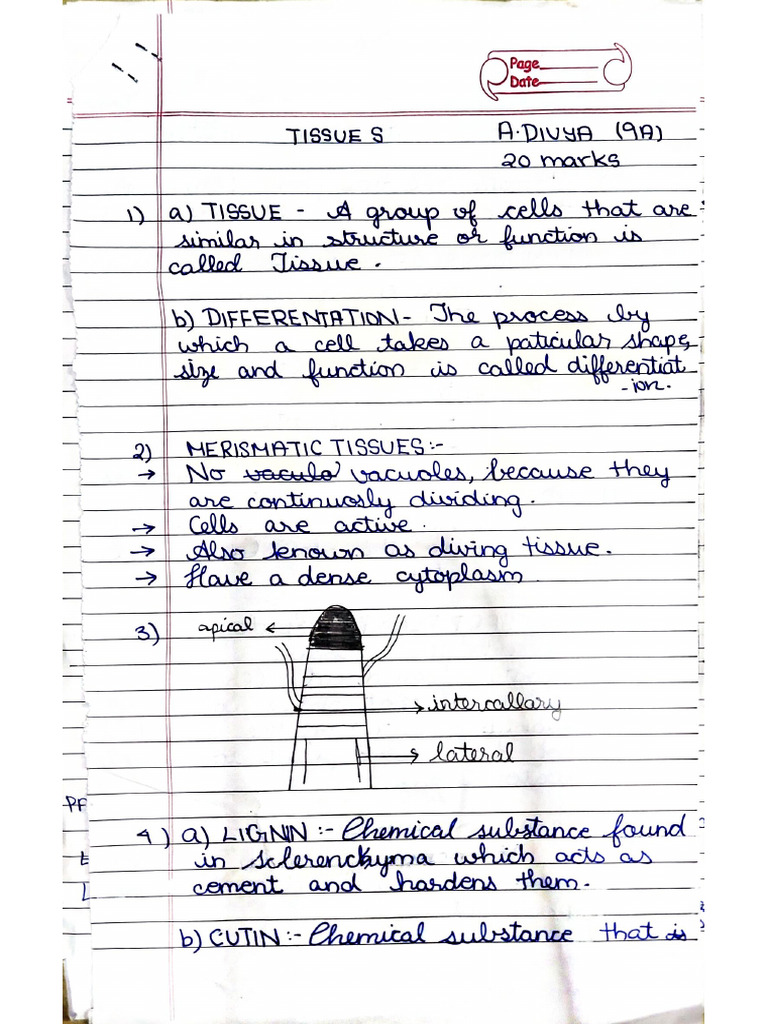 Page
Date
TISSUES A.DIVYA (9A)
20 marks
1) a) TISSUE - A group of cells that are
similar in structure or function is
called Tissue.
b) DIFFERENTATION- The process by
which a cell takes a paticular shape,
size and function is called differentiat
-ion.
2) MERISMATIC TISSUES:-
→ No vaculo vacuoles, because they
are continuosly dividing.
→ Cells are active.
→ Also known as diving tissue.
→ Have a dense cytoplasm
3) apical
intercallary
lateral
PF
4) a) LIGNIN :- Chemical substance found
in sclerenchyma which acts as
cement and hardens them.
b) CUTIN :- Chemical substance that is